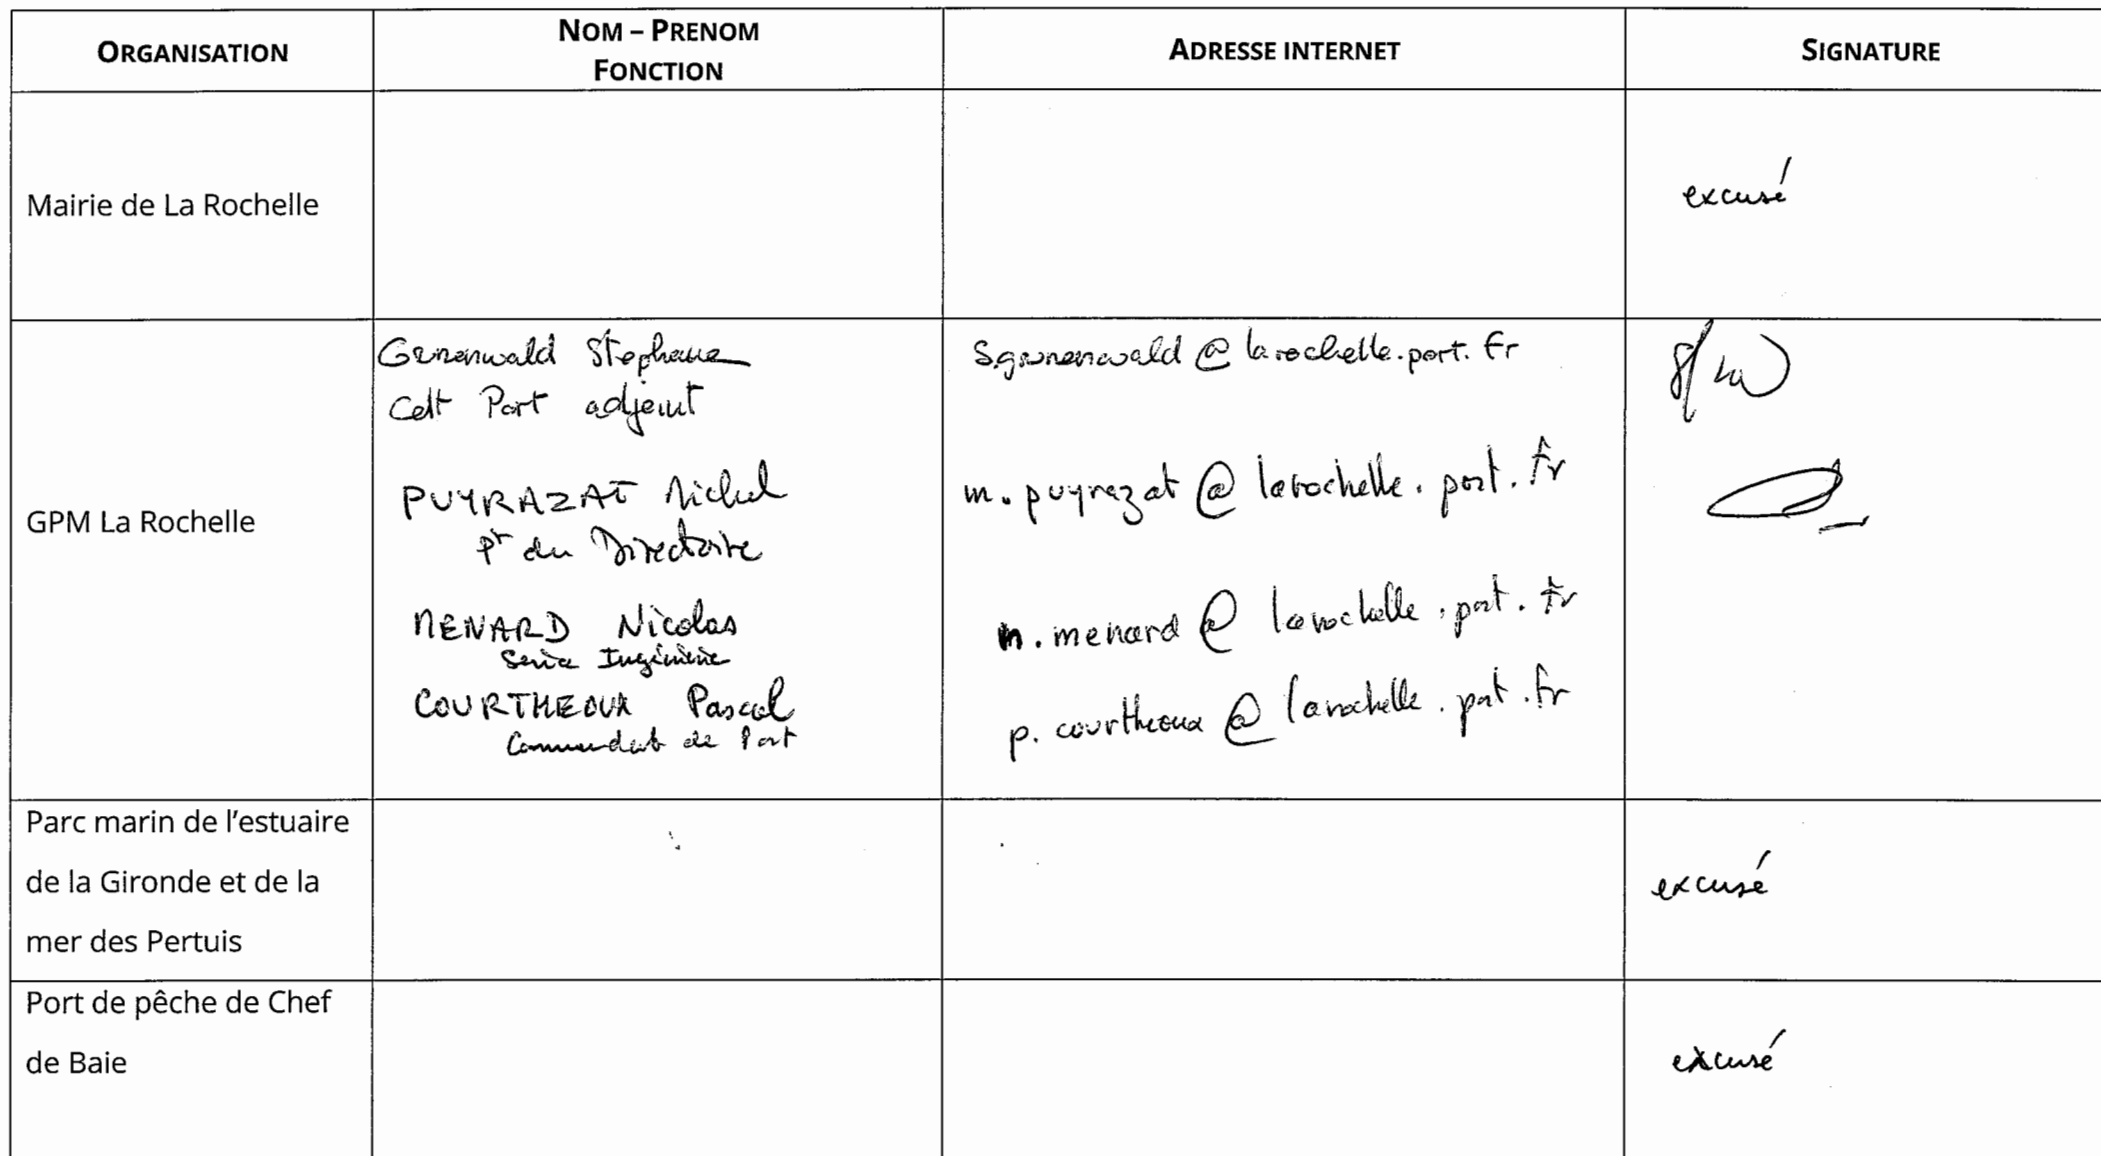 ORGANISATION
NOM – PRENOM
FONCTION
ADRESSE INTERNET
SIGNATURE
Mairie de La Rochelle
excusé
GPM La Rochelle
Stephane
Cdt Port adjoint
PUYRAZAT Michel
Pt du Directoire
MENARD Nicolas
Service Ingénierie
COURTHEOUX Pascal
Commandant de Port
@larochelle.port.fr
m.puyrazat@larochelle.port.fr
n.menard@larochelle.port.fr
p.courtheoux@larochelle.port.fr
Parc marin de l'estuaire
de la Gironde et de la
mer des Pertuis
excusé
Port de pêche de Chef
de Baie
excusé